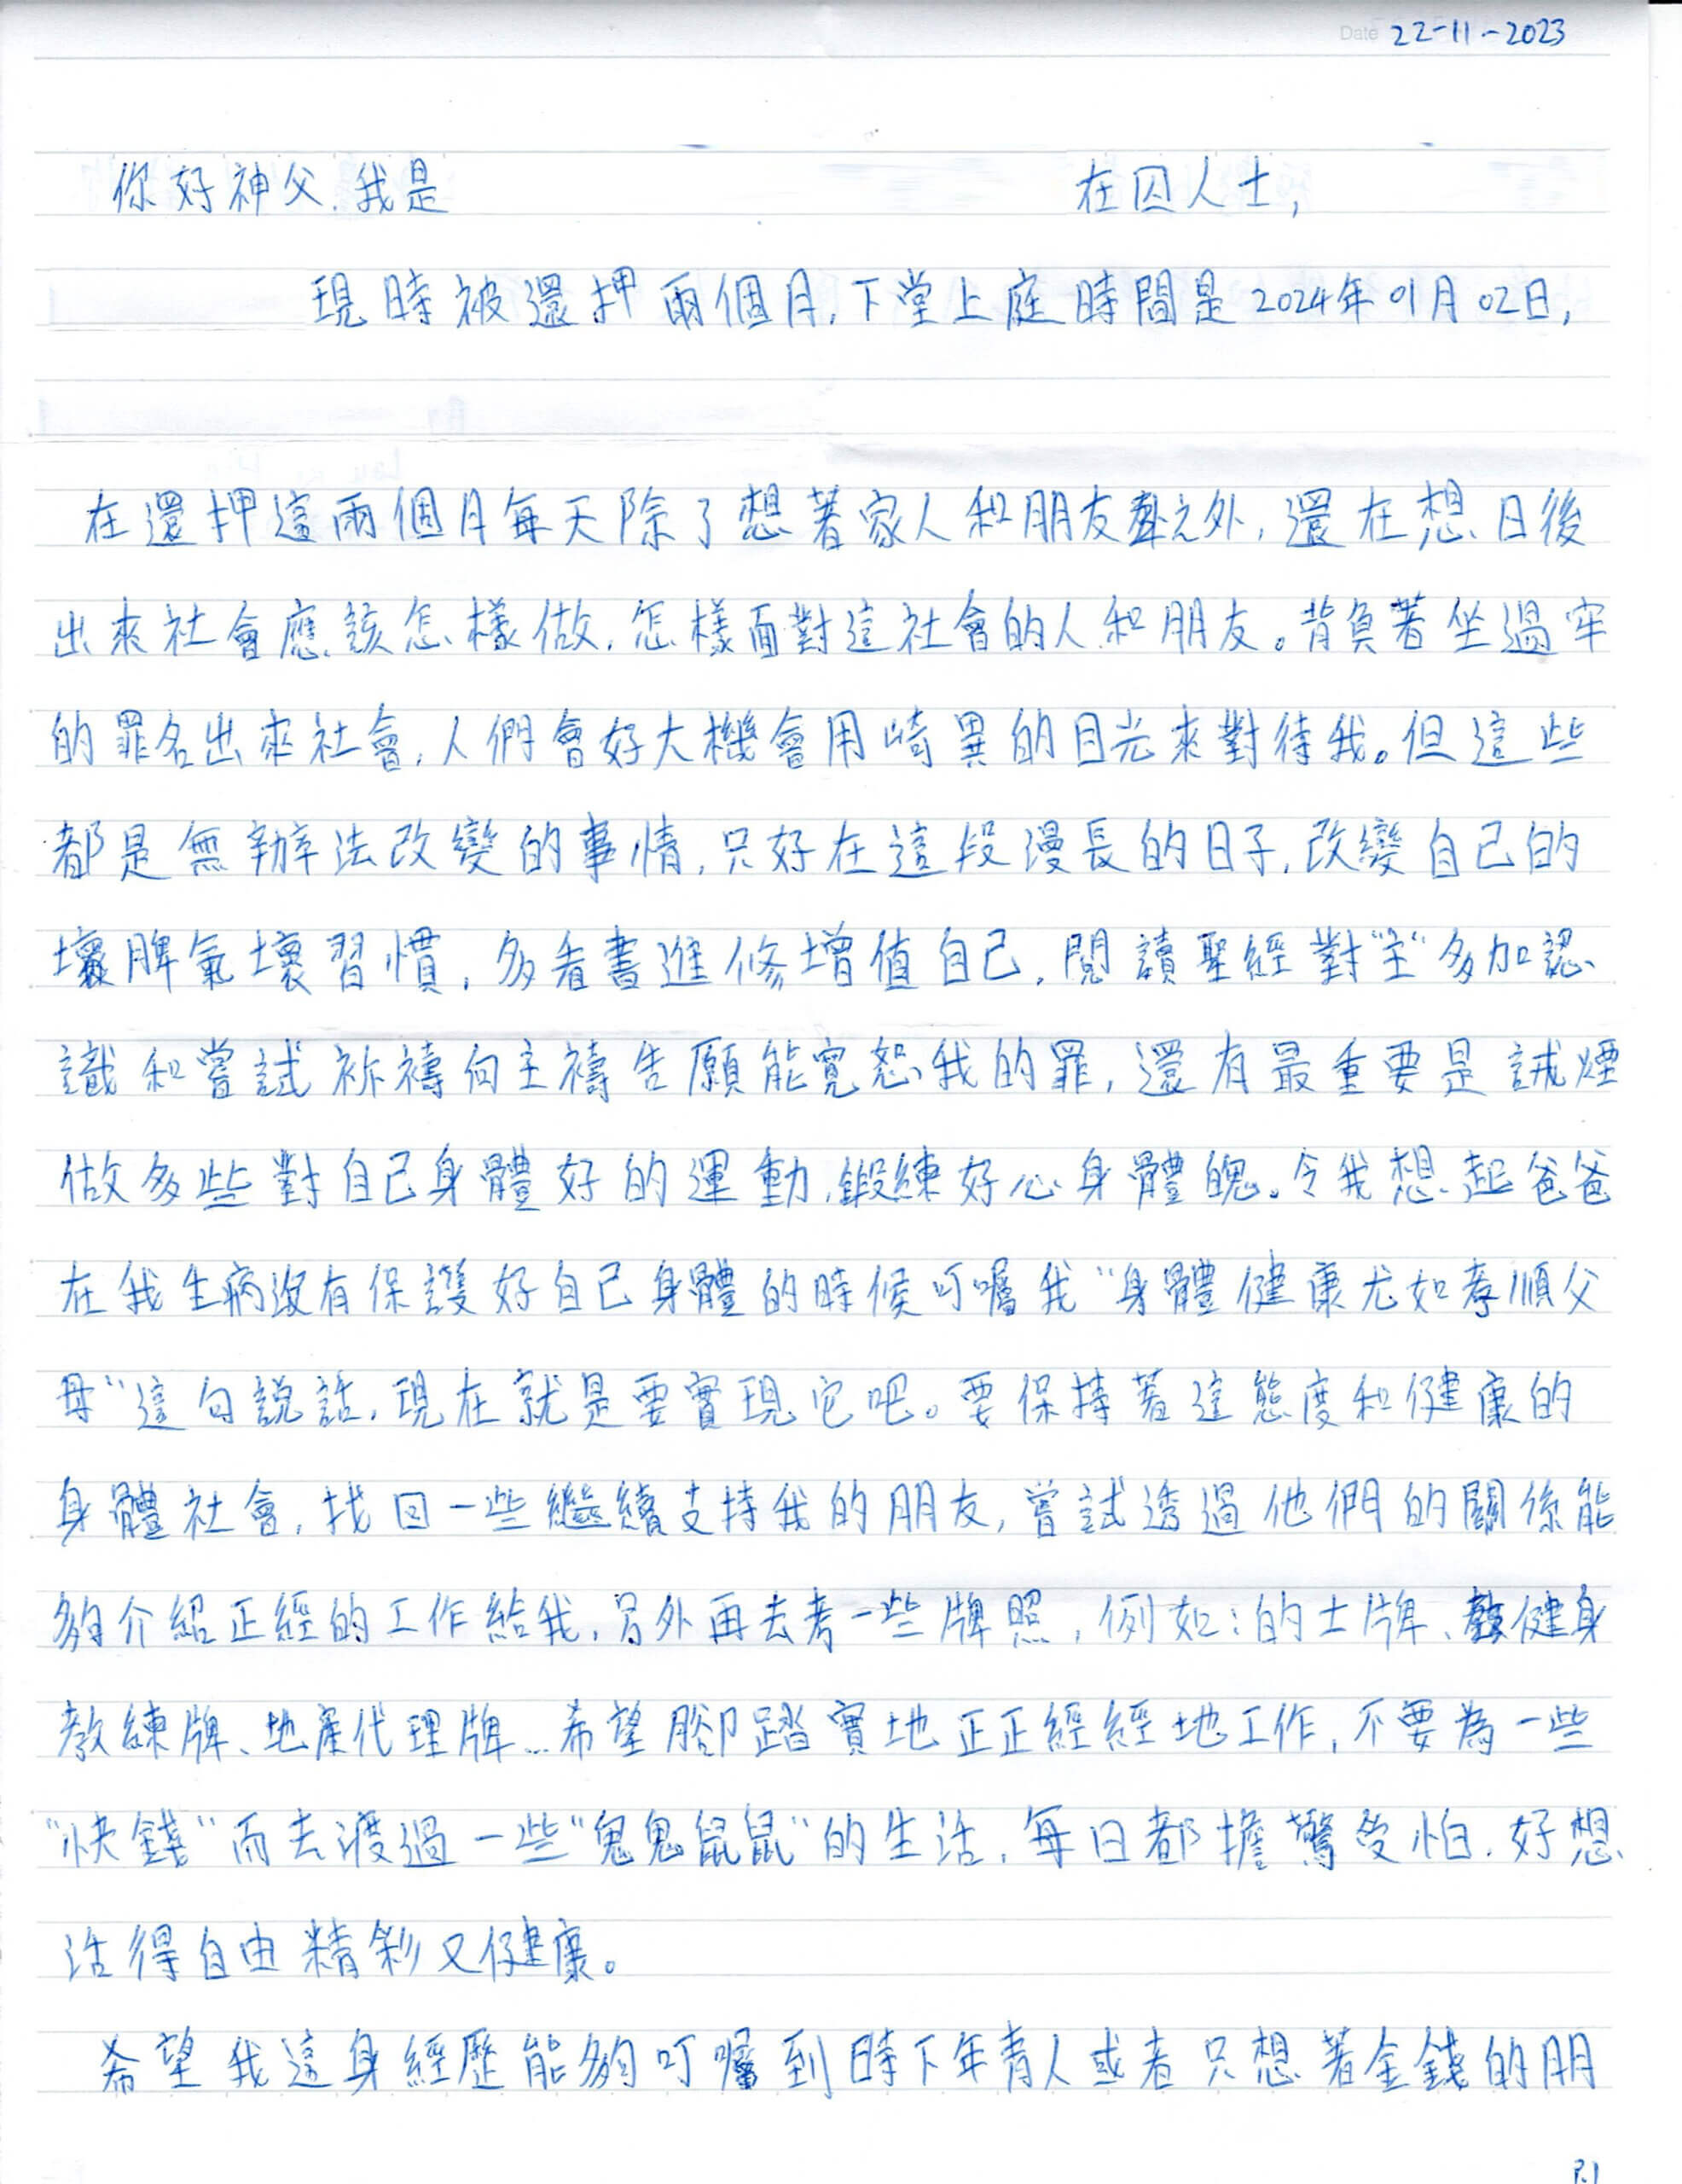 Date 22-11-2023
你好神父.我是 在囚人士,
現時被還押兩個月,下堂上庭時間是2024年01月02日,
在還押這兩個月每天除了想著家人和朋友群之外,還在想日後
出來社會應該怎樣做,怎樣面對這社會的人和朋友。背負著坐過牢
的罪名出來社會,人們會好大機會用崎異的目光來對待我。但這些
都是無辦法改變的事情,只好在這段漫長的日子,改變自己的
壞脾氣壞習慣,多看書進修增值自己,閱讀聖經對"主"多加認
識和嘗試祢禱向主禱告願能寬恕我的罪,還有最重要是誡煙
做多些對自己身體好的運動,鍛練好心身體魄。令我想起爸爸
在我生病沒有保護好自己身體的時候叮囑我"身體健康尤如孝順父
母"這句說話,現在就是要實現它吧。要保持著這態度和健康的
身體社會,找回一些繼續支持我的朋友,嘗試透過他們的關係能
夠介紹正經的工作給我,另外再去考一些牌照,例如:的士牌、健身
教練牌、地產代理牌...希望腳踏實地正正經經地工作,不要為一些
"快錢"而去渡過一些"鬼鬼鼠鼠"的生活,每日都擔驚受怕.好想
活得自由精彩又健康。
希望我這身經歷能夠叮囑到時下年青人或者只想著金錢的朋
P.1